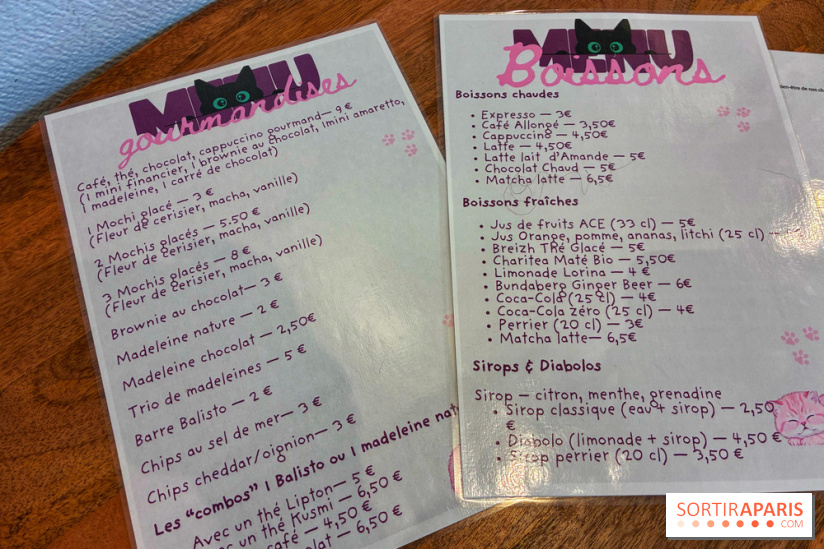 MENU
gourmandises
Café, thé, chocolat, cappuccino gourmand— 9 €
(1 mini financier, 1 brownie au chocolat, 1mini amaretto,
1 madeleine, 1 carré de chocolat)
1 Mochi glacé — 3 €
(Fleur de cerisier, macha, vanille)
2 Mochis glacés — 5.50 €
(Fleur de cerisier, macha, vanille)
3 Mochis glacés — 8 €
(Fleur de cerisier, macha, vanille)
Brownie au chocolat— 3 €
Madeleine nature — 2 €
Madeleine chocolat — 2,50€
Trio de madeleines — 5 €
Barre Balisto — 2 €
Chips au sel de mer— 3 €
Chips cheddar/oignion— 3 €
Les "combos" 1 Balisto ou 1 madeleine nat
Avec un thé Lipton— 5 €
ec un thé Kusmi — 6,50 €
café — 4,50 €
olat — 6,50 €
MENU
Boissons
Boissons chaudes
• Expresso — 3€
• Café Allongé — 3,50€
• Cappuccino — 4,50€
• Latte — 4,50€
• Latte lait d'Amande — 5€
• Chocolat Chaud — 5€
• Matcha latte — 6,5€
Boissons fraîches
• Jus de fruits ACE (33 cl) — 5€
• Jus Orange, pomme, ananas, litchi (25 cl) —
• Breizh THé Glacé — 5€
• Charitea Maté Bio — 5,50€
• Limonade Lorina — 4 €
• Bundaberg Ginger Beer — 6€
• Coca-Cola (25 cl) — 4€
• Coca-Cola zéro (25 cl) — 4€
• Perrier (20 cl) — 3€
• Matcha latte— 6,5€
Sirops & Diabolos
Sirop — citron, menthe, grenadine
• Sirop classique (eau + sirop) — 2,50
€
• Diabolo (limonade + sirop) — 4,50 €
• Sirop perrier (20 cl) — 3,50 €
bien-être de nos cha
SORTIRAPARIS
.COM